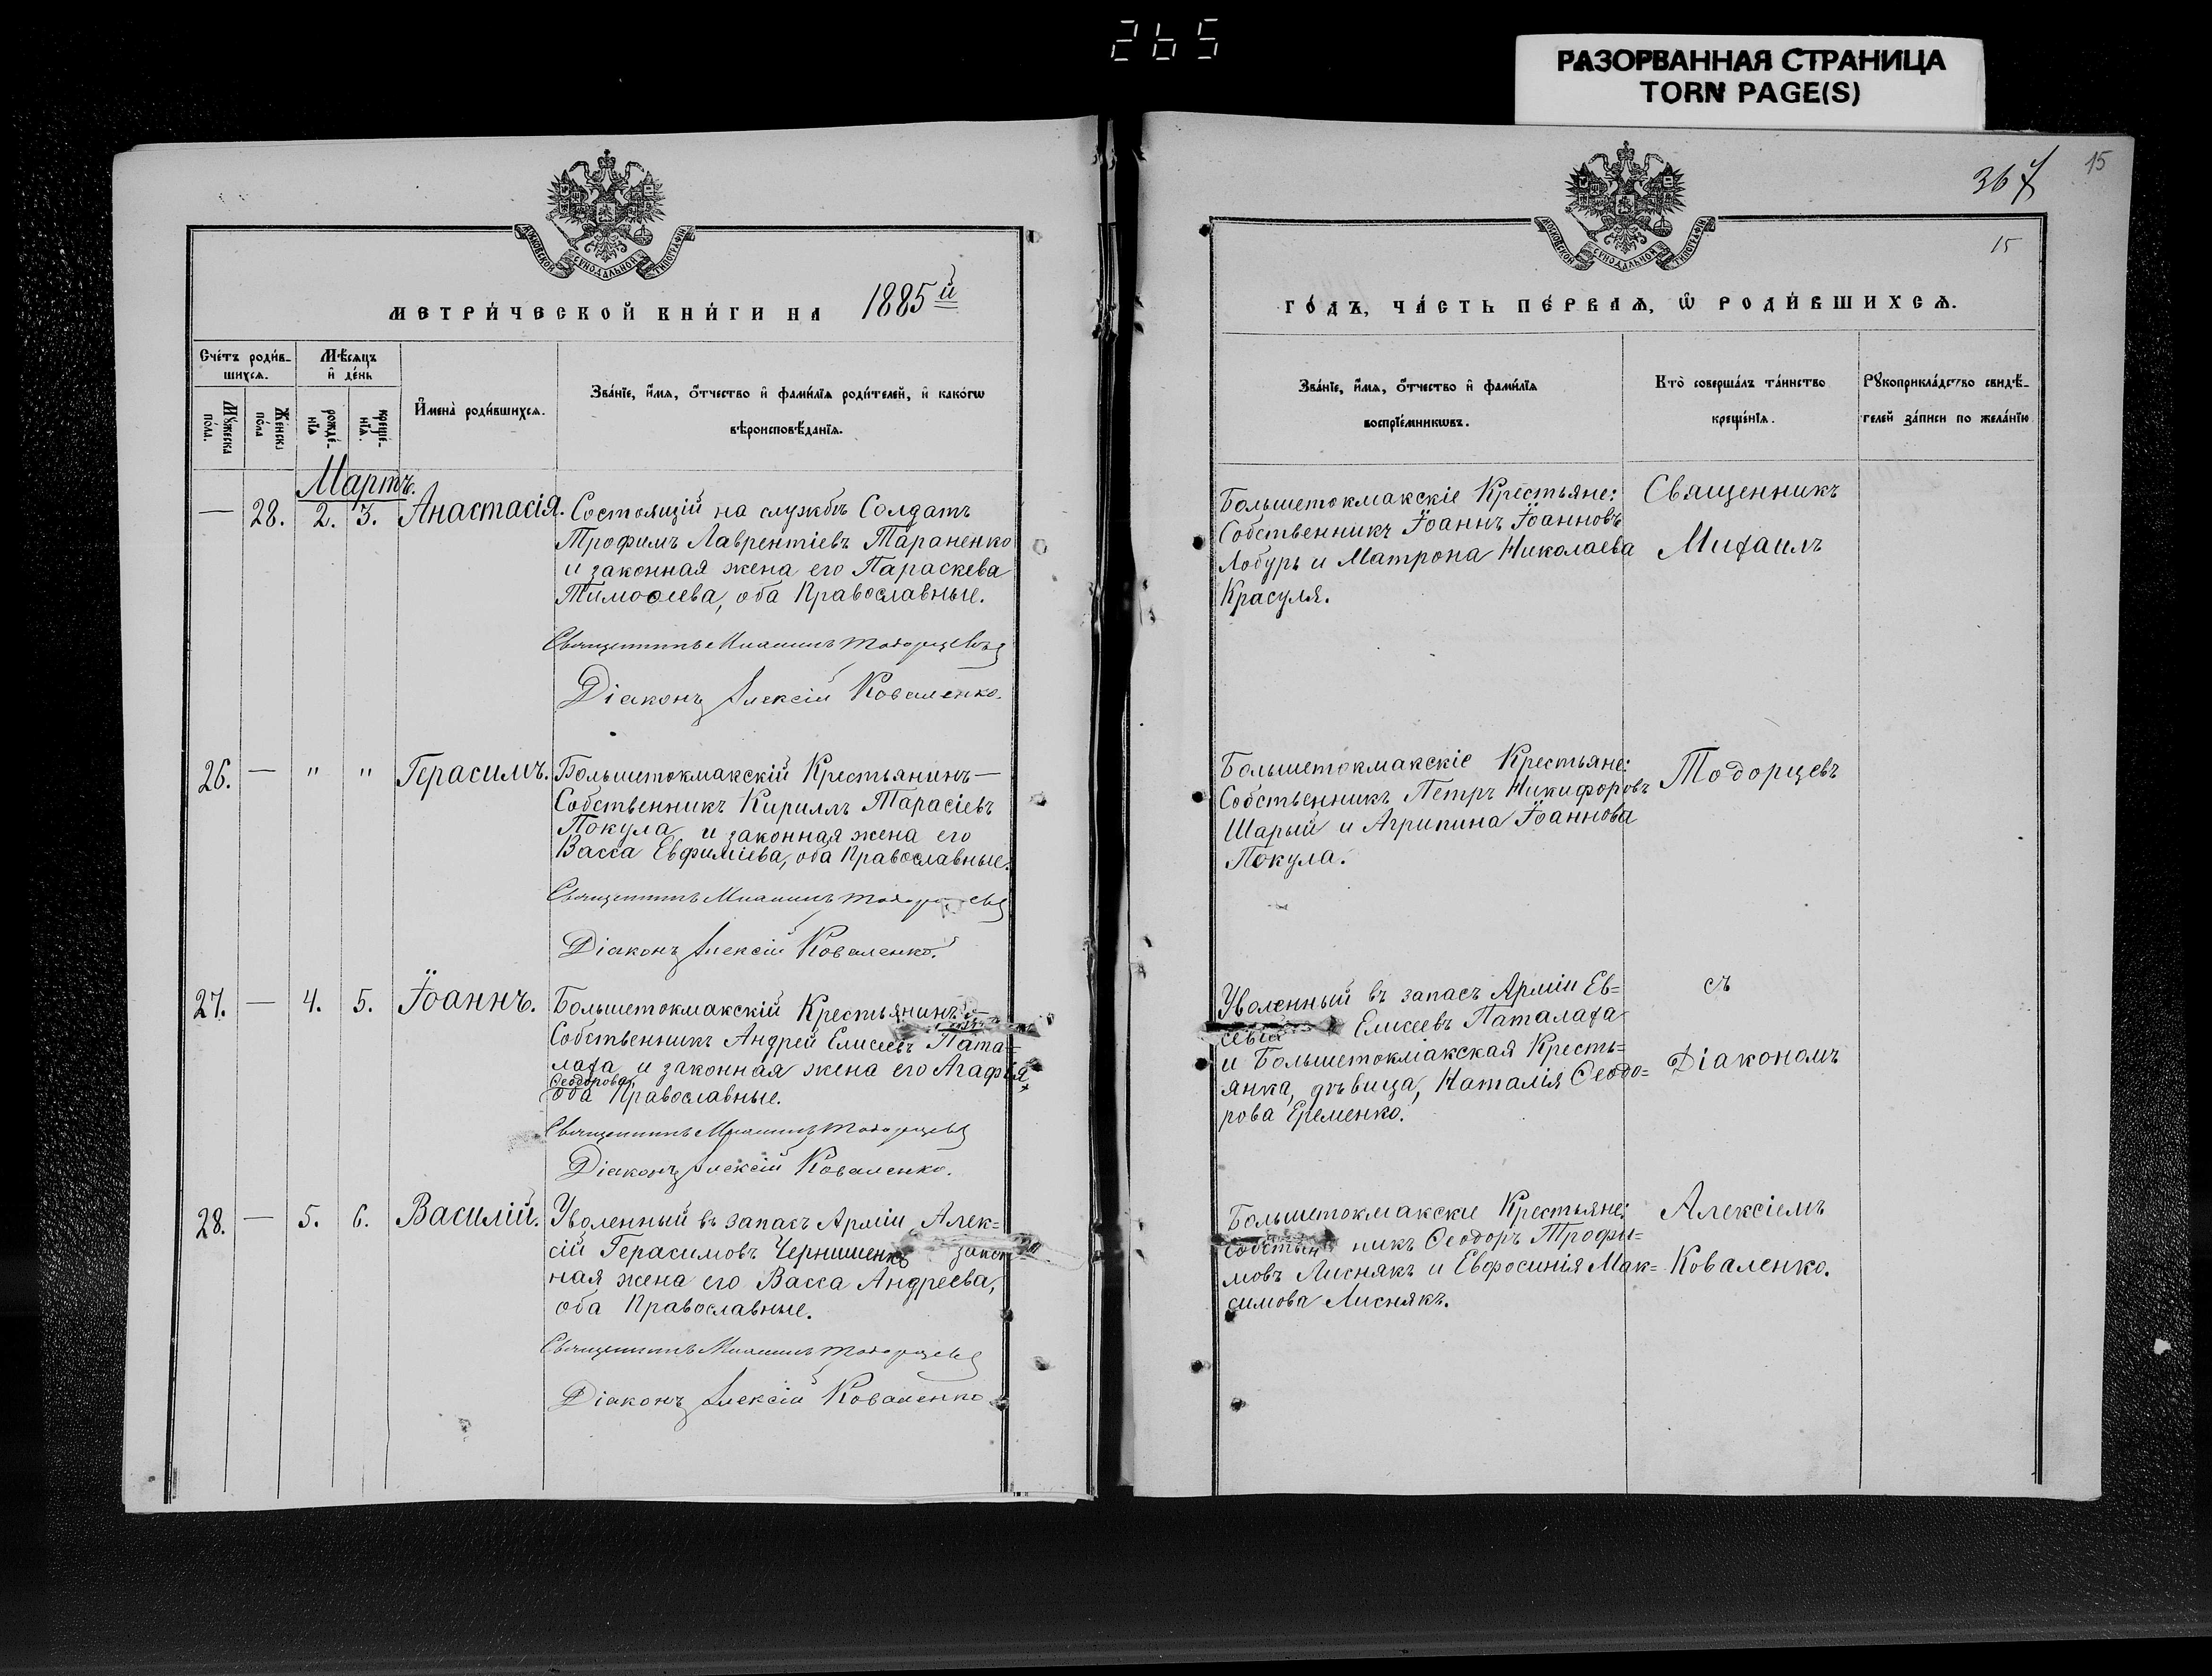 265
РАЗОРВАННАЯ СТРАНИЦА
TORN PAGE(S)
15
367
15
МОСКОВСКОЙ СѴНОДАЛЬНОЙ ТИПОГРАФІИ
МЕТРИ́ЧЕСКОЙ КНИ́ГИ НА 1885й
Сче́тъ роди́в-
шихсѧ.
Мꙋ́жеска
по́ла.
Же́нска
по́ла
Мѣ́сѧцъ
и҆ де́нь
рожде́-
нїѧ
креще́-
нїѧ.
И҆мена̀ роди́вшихсѧ.
Зва́нїе, и҆́мѧ, ѻ҆́тчество и҆ фами́лїѧ роди́телей, и҆ како́гѡ
вѣроисповѣ́данїѧ.
Мартъ.
— 28. 2. 3. Анастасія.
Состоящій на службѣ Солдатъ
Трофимъ Лаврентіевъ Тараненко
и законная жена его Параскева
Тимоѳеева, оба Православные.
Священникъ Михаилъ Тодорцевъ
Діаконъ Алексій Коваленко.
26. — " " Герасимъ.
Большетокмакскій Крестьянинъ—
Собственникъ Кириллъ Тарасіевъ
Покула и законная жена его
Васса Евфиміева, оба Православные.
Священникъ Михаилъ Тодорцевъ
Діаконъ Алексій Коваленко.
27. — 4. 5. Іоаннъ.
Большетокмакскій Крестьянинъ—
Собственникъ Андрей Елисеевъ Пата=
лаха и законная жена его Агафія
Ѳеодорова,
оба Православные.
Священникъ Михаилъ Тодорцевъ
Діаконъ Алексій Коваленко.
28. — 5. 6. Василій.
Уволенный въ запасъ Арміи Алек=
сій Герасимовъ Чернишенко закон
ная жена его Васса Андреева,
оба Православные.
Священникъ Михаилъ Тодорцевъ
Діаконъ Алексій Коваленко
МОСКОВСКОЙ СѴНОДАЛЬНОЙ ТИПОГРАФІИ
ГО́ДЪ, ЧА́СТЬ ПЕ́РВАѦ, Ѡ҆ РОДИ́ВШИХСѦ.
Зва́нїе, и҆́мѧ, ѻ҆́тчество и҆ фами́лїѧ
воспрїе́мникѡвъ.
Кто̀ соверша́лъ та́инство
креще́нїѧ.
Рꙋкоприкла́дство свидѣ́-
телей за́писи по жела́нїю
Большетокмакскіе Крестьяне:
Собственникъ Іоаннъ Іоанновъ
Лобурь и Матрона Николаева
Красуля.
Священникъ
Михаилъ
Большетокмакскіе Крестьяне:
Собственникъ Петръ Никифоровъ
Шарый и Агрипина Іоаннова
Покула.
Тодорцевъ
Уволенный въ запасъ Арміи Ев=
севій Елисеевъ Паталаха
и Большетокмакская Кресть=
янка, дѣвица, Наталія Ѳеодо=
рова Еременко.
съ
Діакономъ
Большетокмакскіе Крестьяне:
Собствен никъ Ѳеодоръ Трофи=
мовъ Лиснякъ и Евфросинія Мак=
симова Лиснякъ.
Алексіемъ
Коваленко.